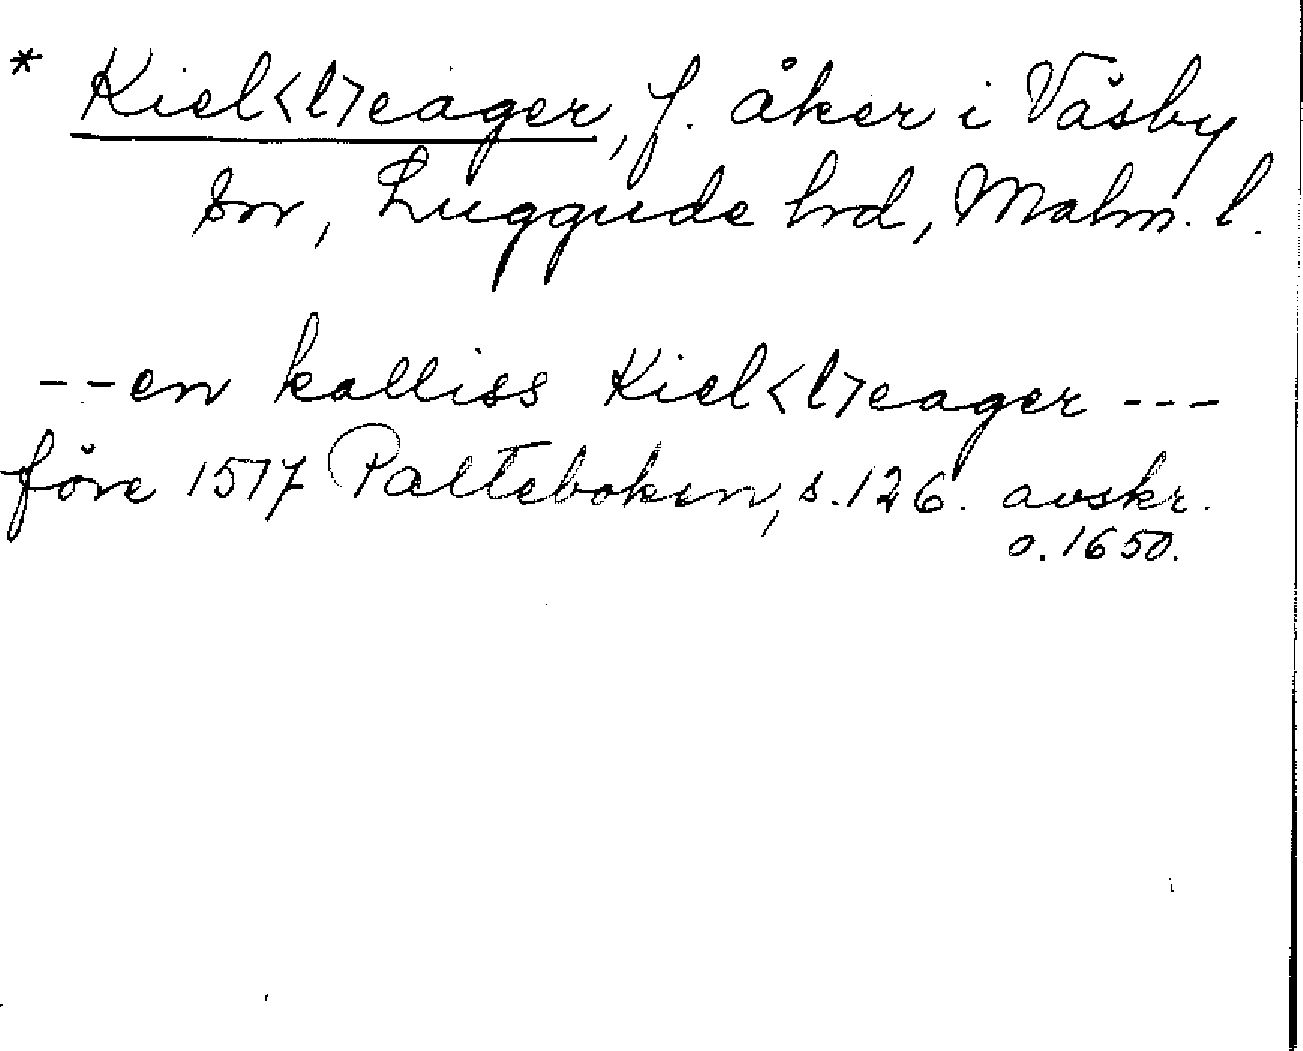 * Kiel<l>eager, f. åker i Väsby
sn, Luggude hd, Malm. l.
--en kalliss Kiel<l>eager ---
före 1517 Palteboken, s. 126. avskr.
o. 1650.